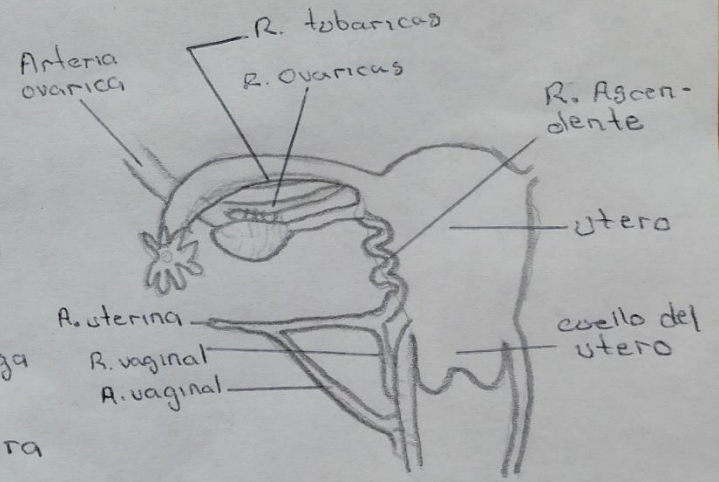 R. tobaricas
Arteria
ovarica
R. Ovaricas
R. Ascen-
dente
utero
A. uterina
cuello del
utero
R. vaginal
A. vaginal
ga
ra